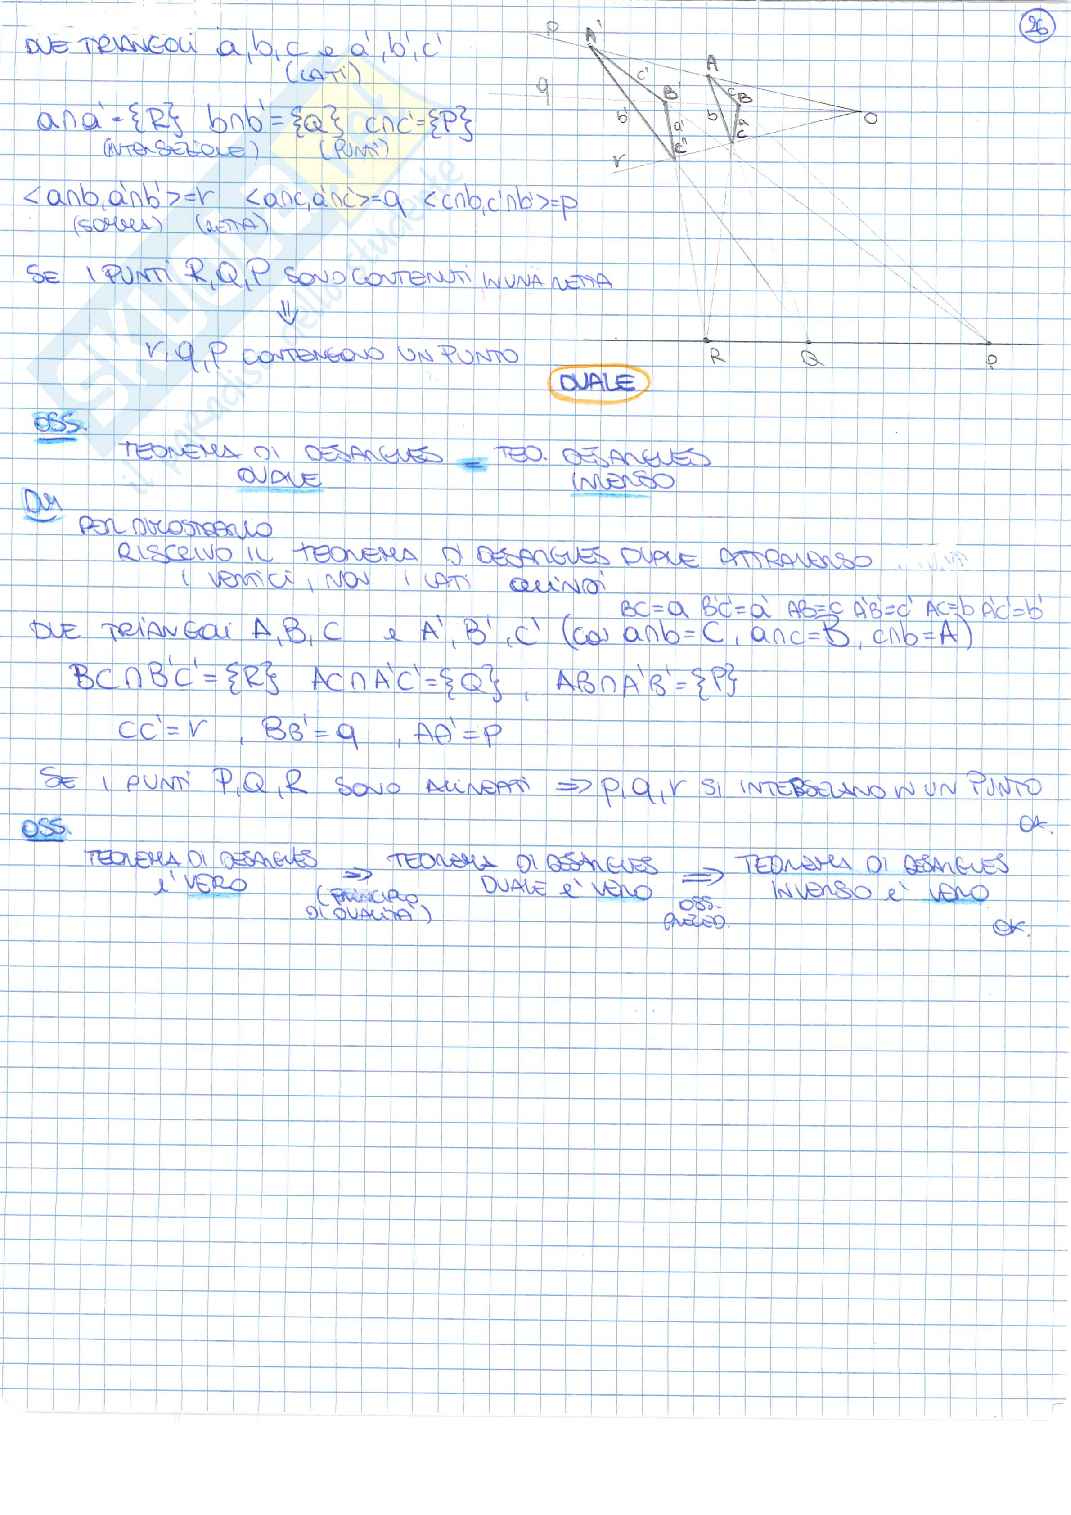 26
DUE TRIANGOLI a,b,c e a',b',c'
(LATI)
a∩a'={R} b∩b'={Q} c∩c'={P}
(INTERSEZIONE) (PUNTI)
<a∩b,a'∩b'>=r <a∩c,a'∩c'>=q <c∩b,c'∩b'>=p
(SOMMA) (RETTA)
SE I PUNTI R,Q,P SONO CONTENUTI IN UNA RETTA
⇓
r,q,p CONTENGONO UN PUNTO
p A' A
c' c
q B' B
b' b O
a' a
r C' C
R Q P
DUALE
OSS.
TEOREMA DI DESARGUES = TEO. DESARGUES
DUALE INVERSO
DIM
PER DIMOSTRARLO
RISCRIVO IL TEOREMA DI DESARGUES DUALE ATTRAVERSO
I VERTICI, NON I LATI QUINDI
BC=a B'C'=a' AB=c A'B'=c' AC=b A'C'=b'
DUE TRIANGOLI A,B,C e A',B',C' (con a∩b=C, a∩c=B, c∩b=A)
BC∩B'C'={R} AC∩A'C'={Q}, AB∩A'B'={P}
CC'=r , BB'=q , AA'=p
SE I PUNTI P,Q,R SONO ALLINEATI ⇒ p,q,r SI INTERSECANO IN UN PUNTO
OK.
OSS.
TEOREMA DI DESARGUES ⇒ TEOREMA DI DESARGUES ⇒ TEOREMA DI DESARGUES
è VERO (PRINCIPIO DUALE è VERO OSS. INVERSO è VERO
DI DUALITÀ) PRECED.
OK.